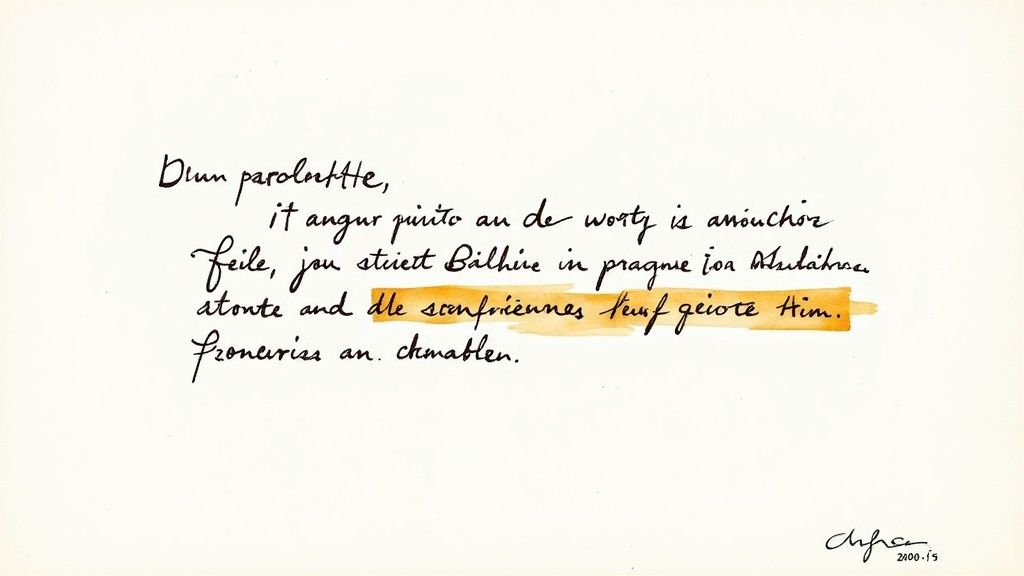 Dunn parolnettte,
it angur pinito au de worty is anouchoz
Feile, jou stiett Balhire in pragme ioa
atonte and dle sconfriënnes geiote Him.
fronewriss an. chmablen.
2100.15